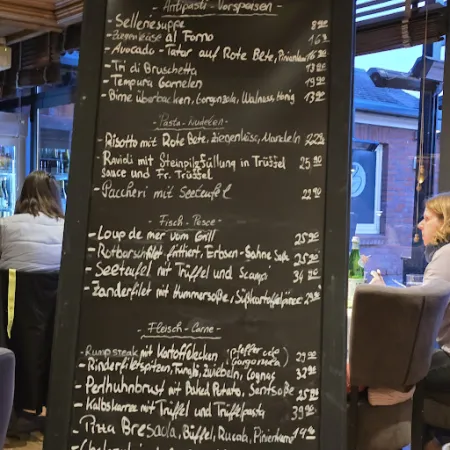 - Antipasti - Vorspeisen -
- Selleriesuppe 8 90
- Ziegenkäse al Forno 16
- Avocado - Tatar auf Rote Bete, Pinienkerne 16
- Tri di Bruschetta 13 90
- Tempura Garnelen 19 90
- Birne überbacken, Gorgonzola, Walnuss, Honig 13 90
- Pasta - Nudeln -
- Risotto mit Rote Bete, Ziegenkäse, Mandeln 22
- Ravioli mit Steinpilzfüllung in Trüffel 25,90
sauce und Fr. Trüffel
- Paccheri mit Seeteufel 22 90
- Fisch - Pesce -
- Loup de mer vom Grill 25 90
- Rotbarschfilet frittiert, Erbsen-Sahne 25 90
- Seeteufel mit Trüffel und Scampi 34
- Zanderfilet mit Hummersoße, Süßkartoffelpüree
- Fleisch - Carne -
- Rumpsteak mit Kartoffelecken (Pfeffer oder 29 90
Gorgonzola)
- Rinderfiletspitzen, Funghi, Zwiebeln, Cognac 32 90
- Perlhuhnbrust mit Baked Potato, Senfsoße 25
- Kalbskarree mit Trüffel und Trüffelpasta 39 90
- Pizza Bresaola, Büffel, Rucola, Pinienkerne 19